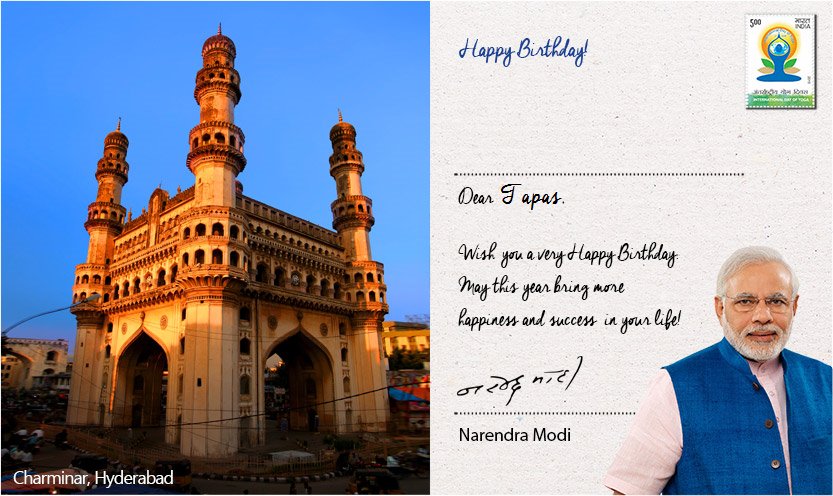 Happy Birthday!
5.00 भारत
INDIA
अंतर्राष्ट्रीय योग दिवस
INTERNATIONAL DAY OF YOGA
Dear Tapas.
Wish you a very Happy Birthday.
May this year bring more
happiness and success in your life!
नरेन्द्र मोदी
Narendra Modi
Charminar, Hyderabad